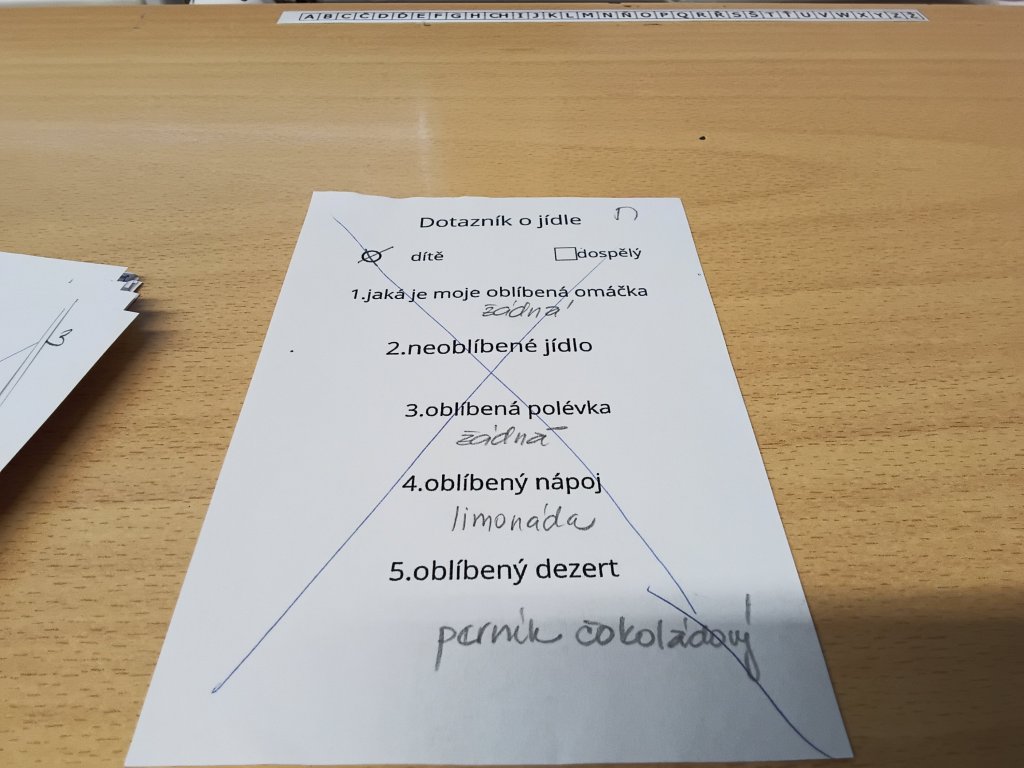 A B C Č D Ď E F G H CH I J K L M N Ň O P Q R Ř S Š T Ť U V W X Y Z Ž
Dotazník o jídle
dítě dospělý
1.jaká je moje oblíbená omáčka
žádná
2.neoblíbené jídlo
3.oblíbená polévka
žádná
4.oblíbený nápoj
limonáda
5.oblíbený dezert
perník čokoládový
3